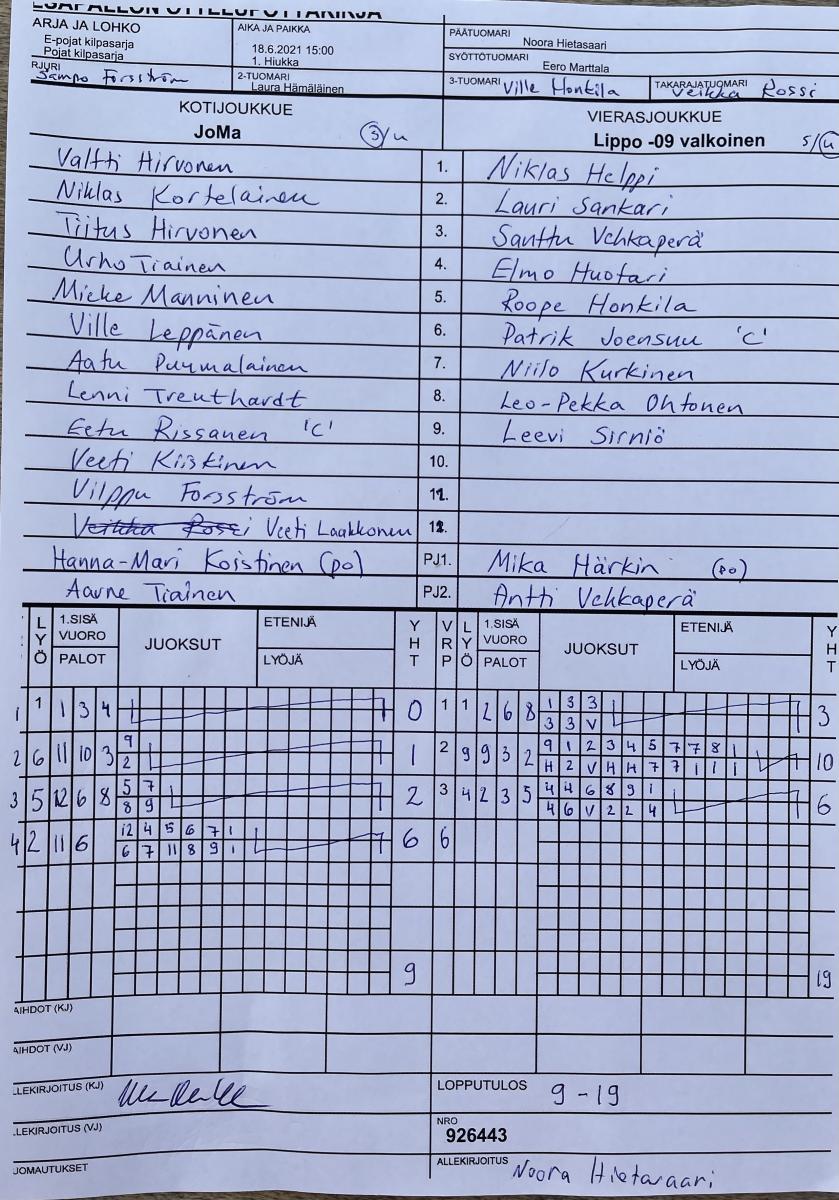 ARJA JA LOHKO
E-pojat kilpasarja
Pojat kilpasarja
AIKA JA PAIKKA
18.6.2021 15:00
1. Hiukka
PÄÄTUOMARI
Noora Hietasaari
SYÖTTÖTUOMARI
Eero Marttala
RJURI
Sampo Forsström
2-TUOMARI
Laura Hämäläinen
3-TUOMARI Ville Honkila
TAKARAJATUOMARI
Veikka Rossi
KOTIJOUKKUE
JoMa 3/u
VIERASJOUKKUE
Lippo -09 valkoinen s/u
Valtti Hirvonen 1. Niklas Helppi
Niklas Kortelainen 2. Lauri Sankari
Tiitus Hirvonen 3. Santtu Vehkaperä
Urho Tiainen 4. Elmo Huotari
Micke Manninen 5. Roope Honkila
Ville Leppänen 6. Patrik Joensuu 'C'
Aatu Puumalainen 7. Niilo Kurkinen
Lenni Treuthardt 8. Leo-Pekka Ohtonen
Eetu Rissanen 'C' 9. Leevi Sirniö
Veeti Kiiskinen 10.
Vilppu Forsström 11.
Veikka Rossi Veeti Laakkonen 12.
Hanna-Mari Koistinen (po) PJ1. Mika Härkin (po)
Aarne Tiainen PJ2. Antti Vehkaperä
LYÖ 1.SISÄ VUORO PALOT JUOKSUT ETENIJÄ LYÖJÄ YHT VRP LYÖ 1.SISÄ VUORO PALOT JUOKSUT ETENIJÄ LYÖJÄ YHT
1 1 1 3 4 0 1 1 2 6 8 1 3 3 3
3 3 V
2 6 11 10 3 9 1 2 9 9 3 2 9 1 2 3 4 5 7 7 8 1 10
2 H 2 V H H 7 7 1 1 1
3 5 12 6 8 5 7 2 3 4 2 3 5 4 4 6 8 9 1 6
8 9 4 6 V 2 2 4
4 2 11 6 12 4 5 6 7 1 6 6
6 7 11 8 9 1
9 19
AIHDOT (KJ)
AIHDOT (VJ)
LLEKIRJOITUS (KJ)
LOPPUTULOS 9-19
LLEKIRJOITUS (VJ)
NRO
926443
JOMAUTUKSET
ALLEKIRJOITUS Noora Hietasaari